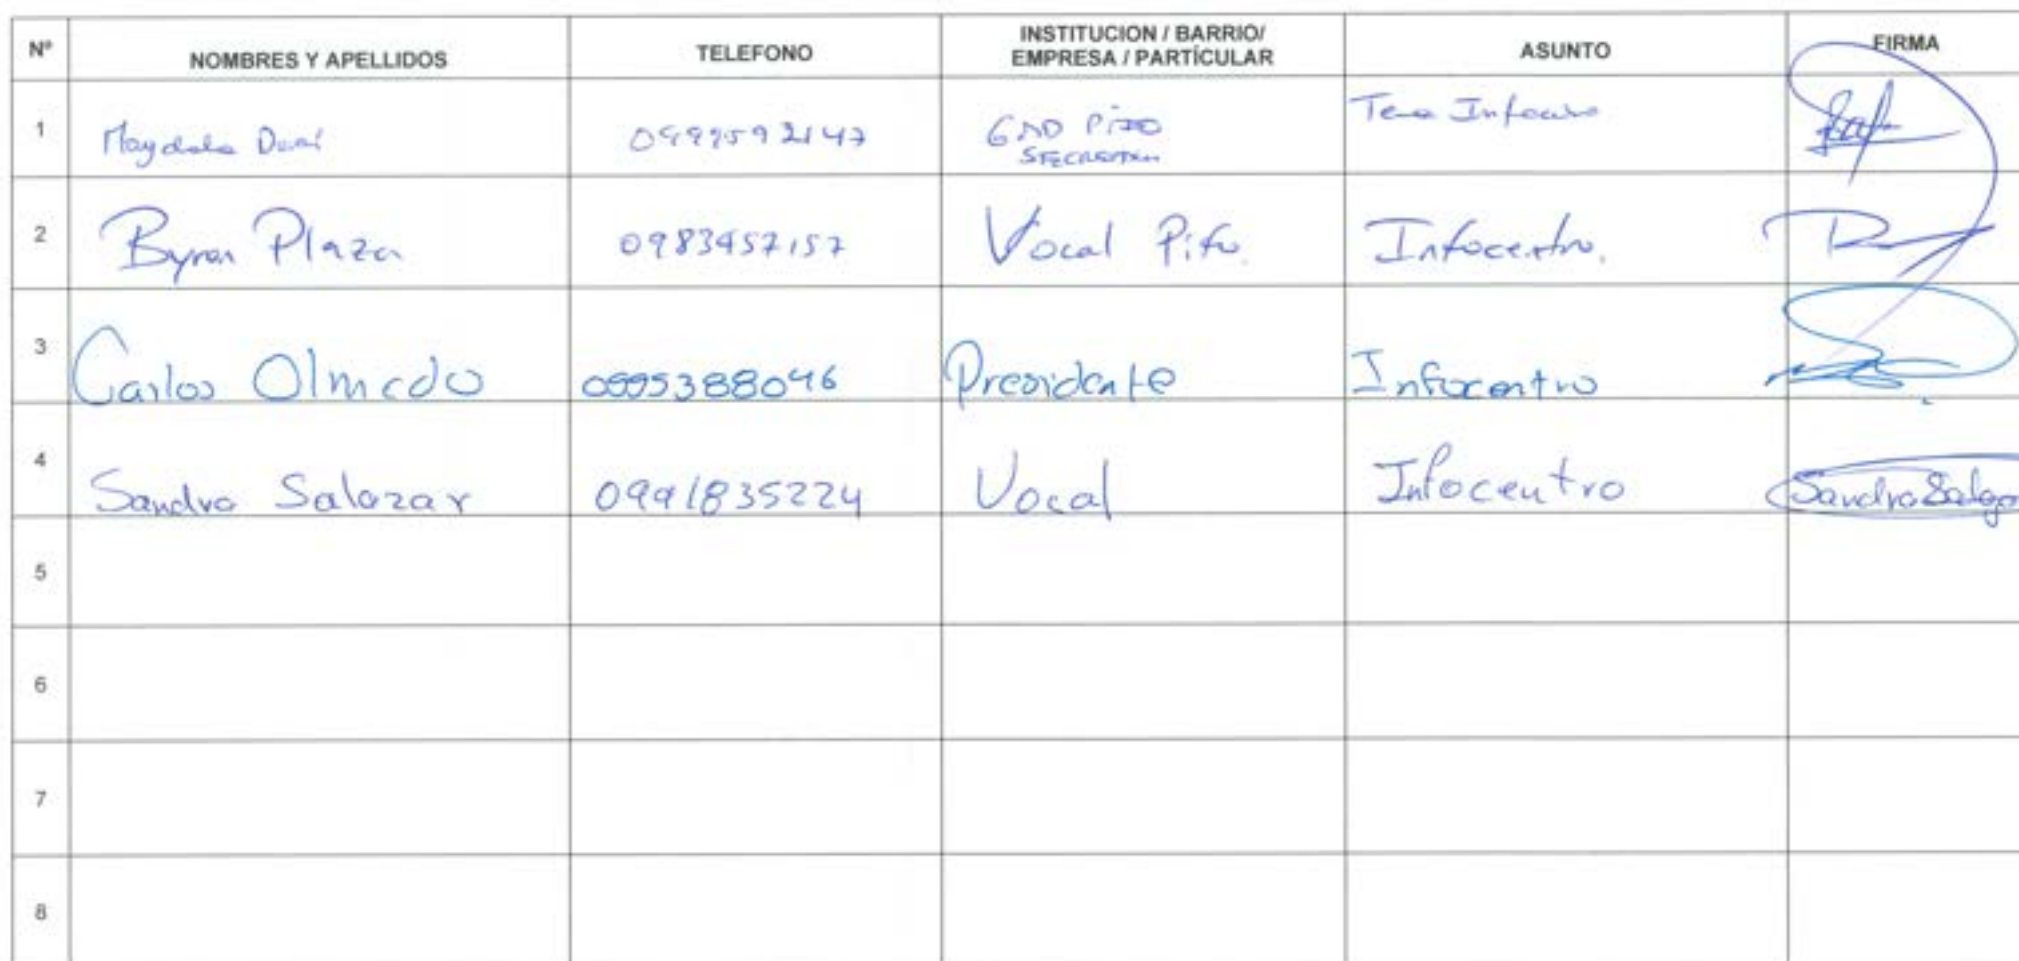 Nº NOMBRES Y APELLIDOS TELEFONO INSTITUCION / BARRIO/ EMPRESA / PARTÍCULAR ASUNTO FIRMA
1 0999592147 GAD PIFO Infocentro
2 Byron Plaza 0983457157 Vocal Pifo. Infocentro.
3 Carlos Olmedo 0995388046 Presidente Infocentro
4 Sandra Salazar 0991835224 Vocal Infocentro Sandra
5
6
7
8